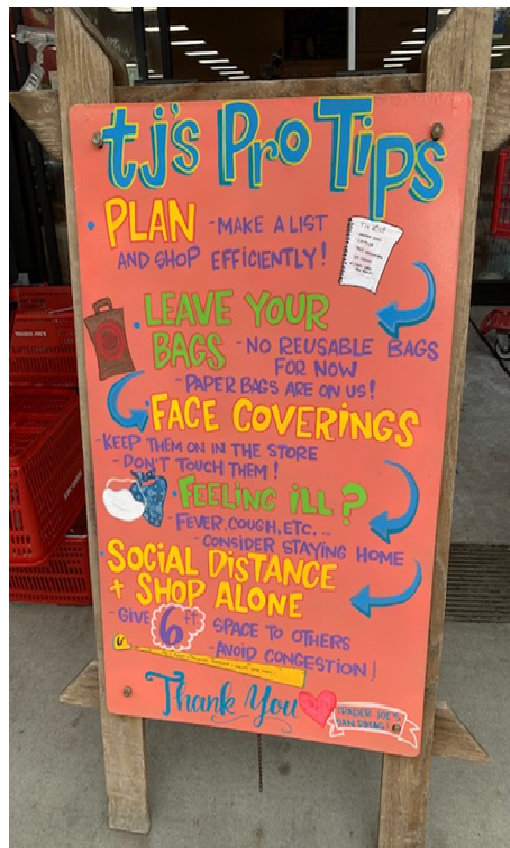 tj's Pro Tips
PLAN - MAKE A LIST
AND SHOP EFFICIENTLY!
LEAVE YOUR
BAGS - NO REUSABLE BAGS
FOR NOW
- PAPER BAGS ARE ON US!
FACE COVERINGS
- KEEP THEM ON IN THE STORE
- DON'T TOUCH THEM!
FEELING ILL?
- FEVER, COUGH, ETC. ...
- CONSIDER STAYING HOME
SOCIAL DISTANCE
+ SHOP ALONE
- GIVE 6 ft SPACE TO OTHERS
- AVOID CONGESTION!
Thank You
TRADER JOE'S
SAN DIMAS!